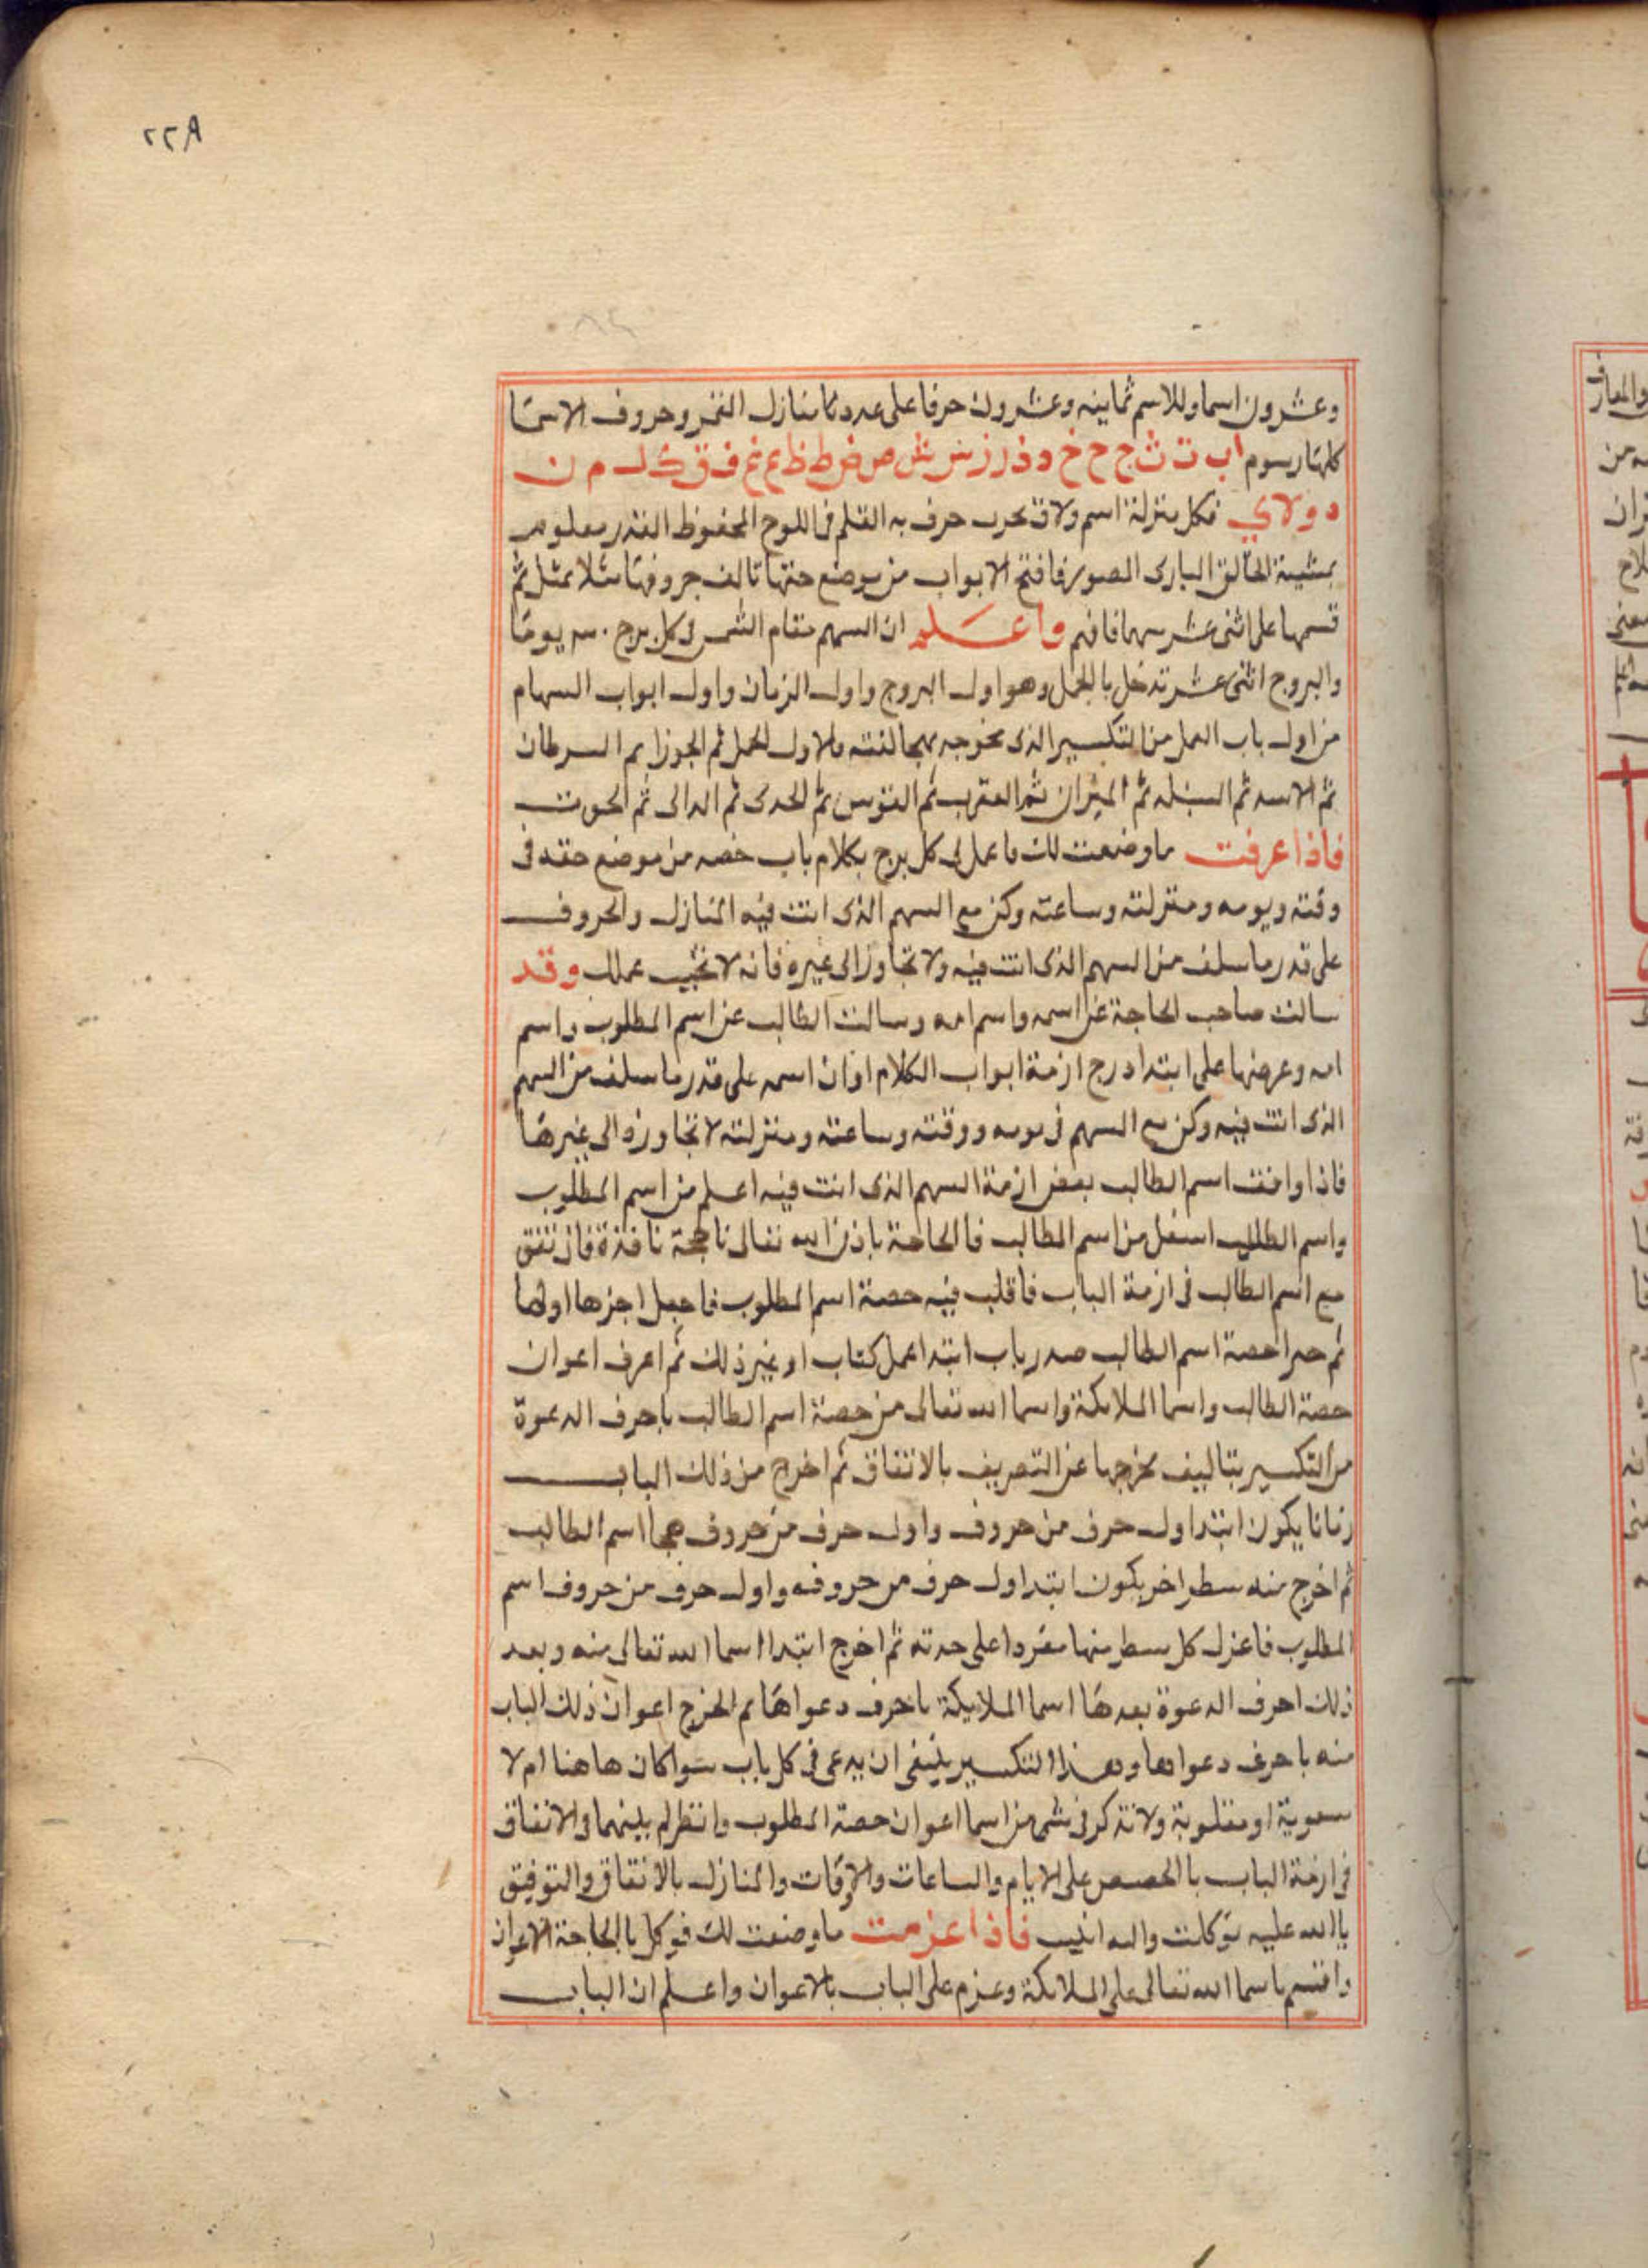 ٢٢٨
وعشرون اسما وللاسم ثمانيه وعشرون حرفا على عدد منازل القمر وحروف الاسما
كلها رسوم ا ب ت ث ج ح خ د ذ ر ز س ش ص ض ط ظ ع غ ف ق ك ل م ن
ه و لا ي فكل منزلة اسم ولا تحرب حرف به القلم فى اللوح المحفوظ القدر معلوم
بمشية الخالق البارى المصور فافتح الابواب من موضع حقها تالف حروفها مثلا بمثل ثم
قسمها على اثنى عشر سهما فافهم واعلم ان السهم مقام الشمس فى كل برج ٣٠ يوما
والبروج اثنى عشر تدخل بالحمل وهو اول البروج واول الزمان واول ابواب السهام
من اول باب العمل من التكسير الذى مخرجه فالاول الحمل ثم الجوزا ثم السرطان
ثم الاسد ثم السنبله ثم الميزان ثم العقرب ثم القوس ثم الجدى ثم الدالى ثم الحوت
فاذا عرفت ما وضعت لك فاعمل فى كل برج بكلام باب خصه من موضع حقه فى
وقته ويومه ومنزلته وساعته وكن مع السهم الذى انت فيه المنازل والحروف
على قدر ما سلف من السهم الذى انت فيه ولا تجاوز الى غيره فانه لا تخيب عملك وقد
سالت صاحب الحاجة عن اسمه واسم امه وسالت الطالب عن اسم المطلوب واسم
امه وعرضها على ابتدا درج ازمة ابواب الكلام اوان اسمه على قدر ما سلف من السهم
الذى انت فيه وكن مع السهم فى يومه ووقته وساعته ومنزلته لا تجاوزه الى غيرها
فاذا وافقت اسم الطالب بعض ازمة السهم الذى انت فيه اعلم من اسم المطلوب
واسم الطالب اسفل من اسم المطالب فالحاجة باذن الله تعالى ناجحة نافذة فان تتفق
مع اسم الطالب فى ازمة الباب فاقلب فيه حصة اسم المطلوب فاجعل اخرها اولها
ثم حصة اسم الطالب صدر باب ابتدا عمل كتاب او غير ذلك ثم اعرف اعوان
حصة الطالب واسما الملايكة واسما الله تعالى من حصة اسم الطالب باحرف الدعوة
من التكسير بتاليف مخرجها عن التعريف بالاتفاق ثم اخرج من ذلك الباب
زماما يكون ابتدا اول حرف من حروف واول حرف من حروف هجا اسم الطالب
ثم اخرج منه سطر اخر يكون ابتدا اول حرف من حروفه واول حرف من حروف اسم
المطلوب فاعزل كل سطر منها مفردا على حدته ثم اخرج ابتدا اسما الله تعالى منه وبعد
ذلك احرف الدعوة بعدها اسما الملايكة باحرف دعواها ثم اخرج اعوان ذلك الباب
منه باحرف دعواها وهذا التكسير ينبغى ان يدعى فى كل باب سوا كان هاهنا ام لا
سعوية او مقلوبة ولا تذكر فى شى من اسما اعوان حصة المطلوب وانظر لم بينهما فى الاتفاق
فى ازمة الباب بالحصص على الايام والساعات والاوقات والمنازل بالاتفاق والتوفيق
بالله عليه توكلت واليه انيب فاذا عزمت ما وضعت لك فوكل بالحاجة الاعوان
واقسم باسما الله تعالى على الملايكة وعزم على الباب بالاعوان واعلم ان الباب